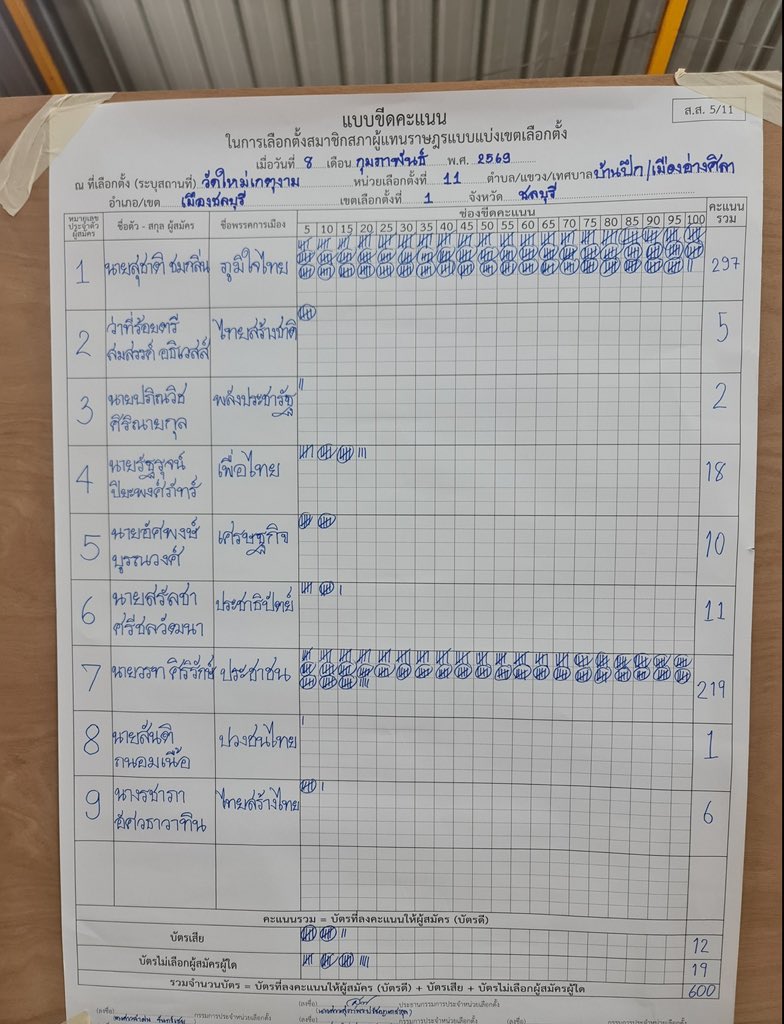 ส.ส. 5/11
แบบขีดคะแนน
ในการเลือกตั้งสมาชิกสภาผู้แทนราษฎรแบบแบ่งเขตเลือกตั้ง
เมื่อวันที่ 8 เดือน กุมภาพันธ์ พ.ศ. 2569
ณ ที่เลือกตั้ง (ระบุสถานที่) วัดใหม่เกตุงาม หน่วยเลือกตั้งที่ 11 ตำบล/แขวง/เทศบาล บ้านปึก/เมืองอ่างศิลา
อำเภอ/เขต เมืองชลบุรี เขตเลือกตั้งที่ 1 จังหวัด ชลบุรี
หมายเลขประจำตัวผู้สมัคร ชื่อตัว - สกุล ผู้สมัคร ชื่อพรรคการเมือง ช่องขีดคะแนน คะแนนรวม
5 10 15 20 25 30 35 40 45 50 55 60 65 70 75 80 85 90 95 100
1 นายสุชาติ ชมกลิ่น ภูมิใจไทย 297
2 ว่าที่ร้อยตรี สมสรรค์ อธิเวสส์ ไทยสร้างชาติ 5
3 นายปภิณวิช ศิริณายกุล พลังประชารัฐ 2
4 นายรัฐรุจน์ ปิยะพงศ์ภัทร์ เพื่อไทย 18
5 นายอัศพงษ์ บูรณวงศ์ เศรษฐกิจ 10
6 นายสรัลชา ศรีชลวัฒนา ประชาธิปัตย์ 11
7 นายวรท ศิริรักษ์ ประชาชน 219
8 นายสันติ ถนอมเนื้อ ปวงชนไทย 1
9 นางรชาภา อัศวธาวาทิน ไทยสร้างไทย 6
คะแนนรวม = บัตรที่ลงคะแนนให้ผู้สมัคร (บัตรดี)
บัตรเสีย 12
บัตรไม่เลือกผู้สมัครผู้ใด 19
รวมจำนวนบัตร = บัตรที่ลงคะแนนให้ผู้สมัคร (บัตรดี) + บัตรเสีย + บัตรไม่เลือกผู้สมัครผู้ใด 600
(ลงชื่อ) ประธานกรรมการประจำหน่วยเลือกตั้ง
(ลงชื่อ) กรรมการประจำหน่วยเลือกตั้ง (ลงชื่อ) กรรมการประจำหน่วยเลือกตั้ง